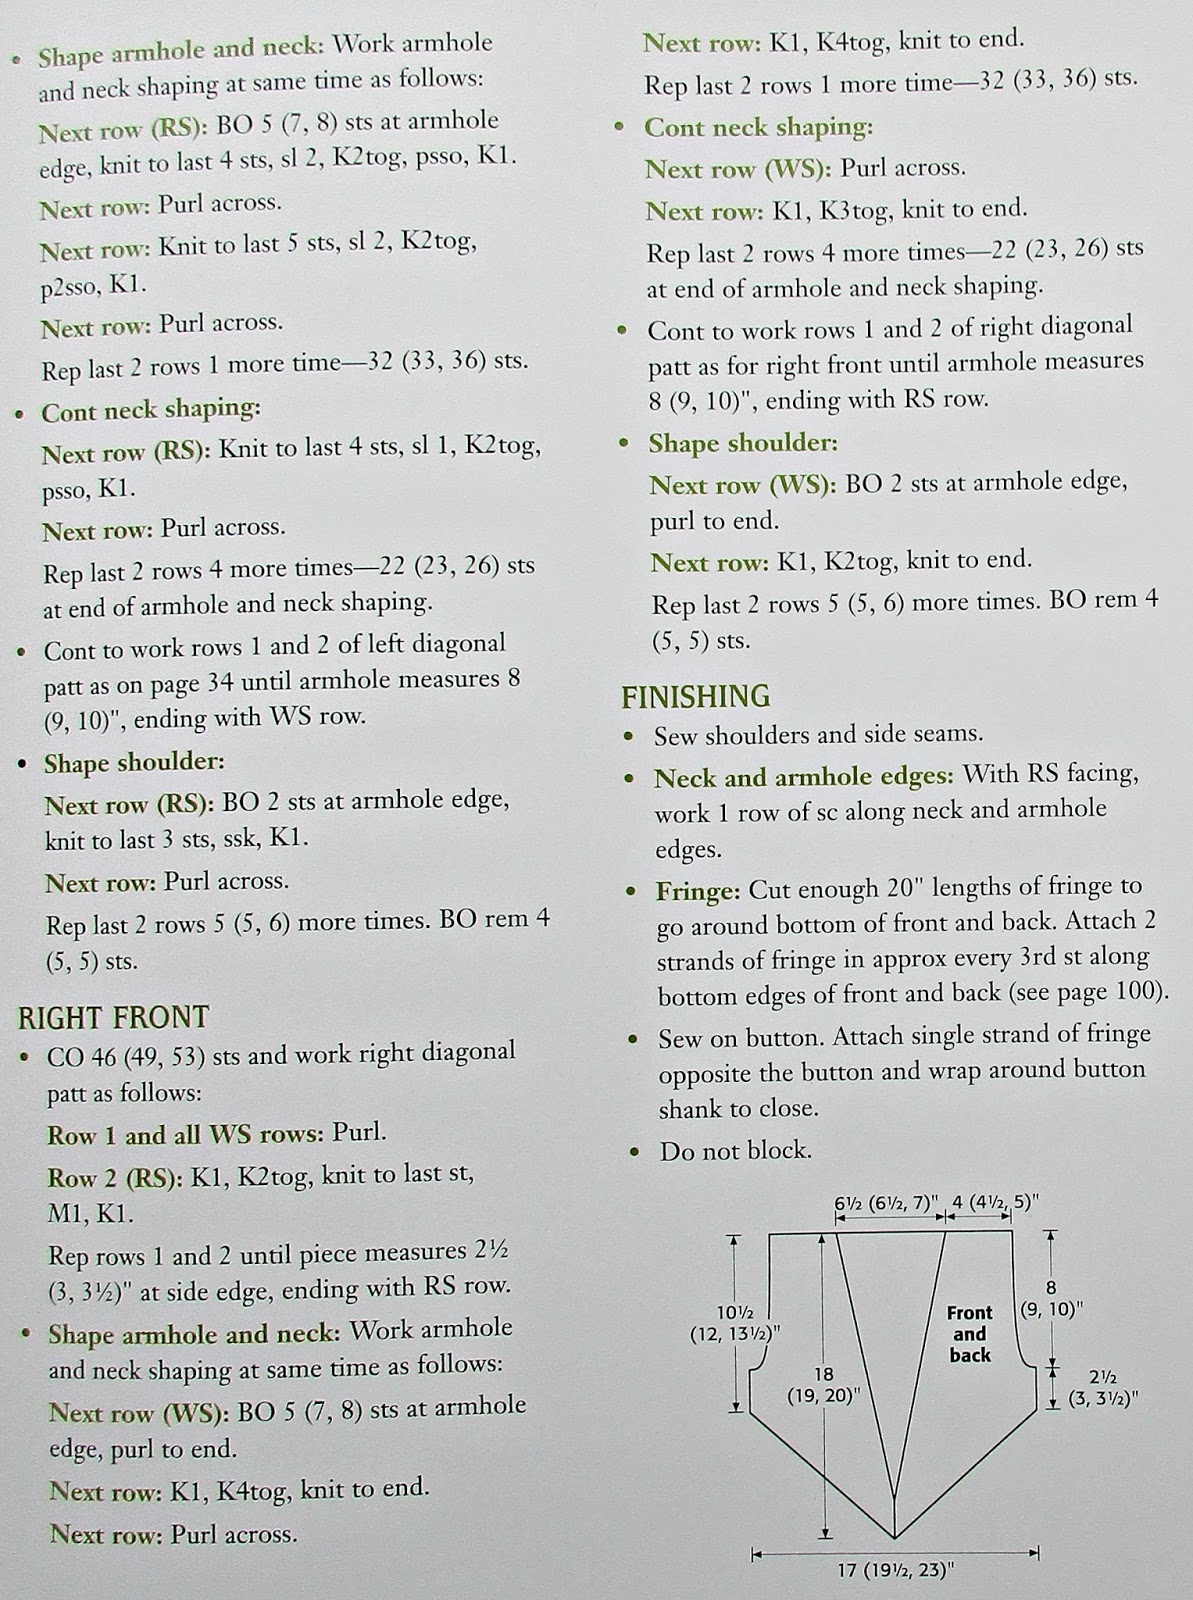 • Shape armhole and neck: Work armhole
and neck shaping at same time as follows:
Next row (RS): BO 5 (7, 8) sts at armhole
edge, knit to last 4 sts, sl 2, K2tog, psso, K1.
Next row: Purl across.
Next row: Knit to last 5 sts, sl 2, K2tog,
p2sso, K1.
Next row: Purl across.
Rep last 2 rows 1 more time—32 (33, 36) sts.
• Cont neck shaping:
Next row (RS): Knit to last 4 sts, sl 1, K2tog,
psso, K1.
Next row: Purl across.
Rep last 2 rows 4 more times—22 (23, 26) sts
at end of armhole and neck shaping.
• Cont to work rows 1 and 2 of left diagonal
patt as on page 34 until armhole measures 8
(9, 10)", ending with WS row.
• Shape shoulder:
Next row (RS): BO 2 sts at armhole edge,
knit to last 3 sts, ssk, K1.
Next row: Purl across.
Rep last 2 rows 5 (5, 6) more times. BO rem 4
(5, 5) sts.
RIGHT FRONT
• CO 46 (49, 53) sts and work right diagonal
patt as follows:
Row 1 and all WS rows: Purl.
Row 2 (RS): K1, K2tog, knit to last st,
M1, K1.
Rep rows 1 and 2 until piece measures 2½
(3, 3½)" at side edge, ending with RS row.
• Shape armhole and neck: Work armhole
and neck shaping at same time as follows:
Next row (WS): BO 5 (7, 8) sts at armhole
edge, purl to end.
Next row: K1, K4tog, knit to end.
Next row: Purl across.
Next row: K1, K4tog, knit to end.
Rep last 2 rows 1 more time—32 (33, 36) sts.
• Cont neck shaping:
Next row (WS): Purl across.
Next row: K1, K3tog, knit to end.
Rep last 2 rows 4 more times—22 (23, 26) sts
at end of armhole and neck shaping.
• Cont to work rows 1 and 2 of right diagonal
patt as for right front until armhole measures
8 (9, 10)", ending with RS row.
• Shape shoulder:
Next row (WS): BO 2 sts at armhole edge,
purl to end.
Next row: K1, K2tog, knit to end.
Rep last 2 rows 5 (5, 6) more times. BO rem 4
(5, 5) sts.
FINISHING
• Sew shoulders and side seams.
• Neck and armhole edges: With RS facing,
work 1 row of sc along neck and armhole
edges.
• Fringe: Cut enough 20" lengths of fringe to
go around bottom of front and back. Attach 2
strands of fringe in approx every 3rd st along
bottom edges of front and back (see page 100).
• Sew on button. Attach single strand of fringe
opposite the button and wrap around button
shank to close.
• Do not block.
6½ (6½, 7)" 4 (4½, 5)"
10½
(12, 13½)"
18
(19, 20)"
Front
and
back
8
(9, 10)"
2½
(3, 3½)"
17 (19½, 23)"